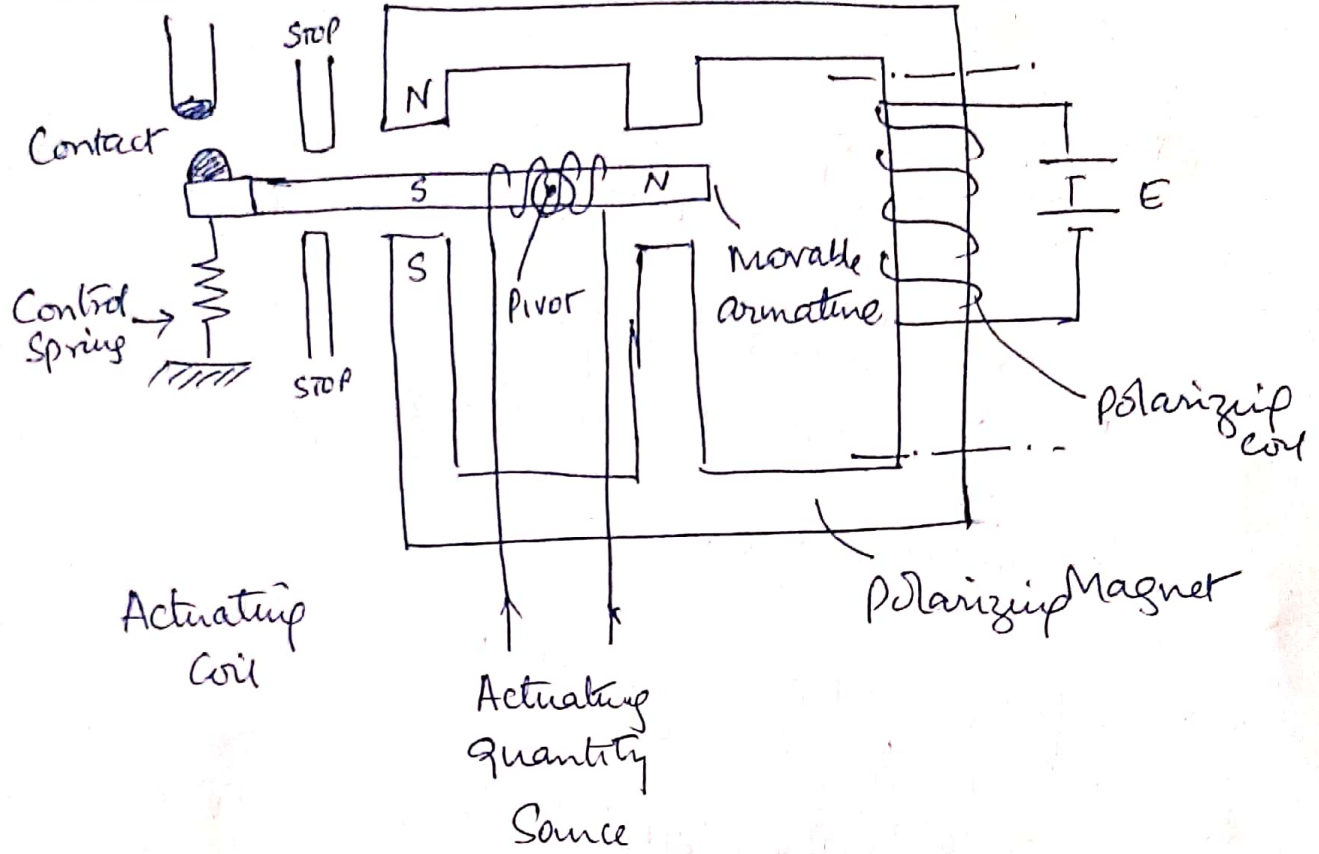 STOP
N
Contact
S
N
E
S
Pivot
Movable
armature
Control
Spring
STOP
Polarizing
coil
Polarizing Magnet
Actuating
Coil
Actuating
Quantity
Source